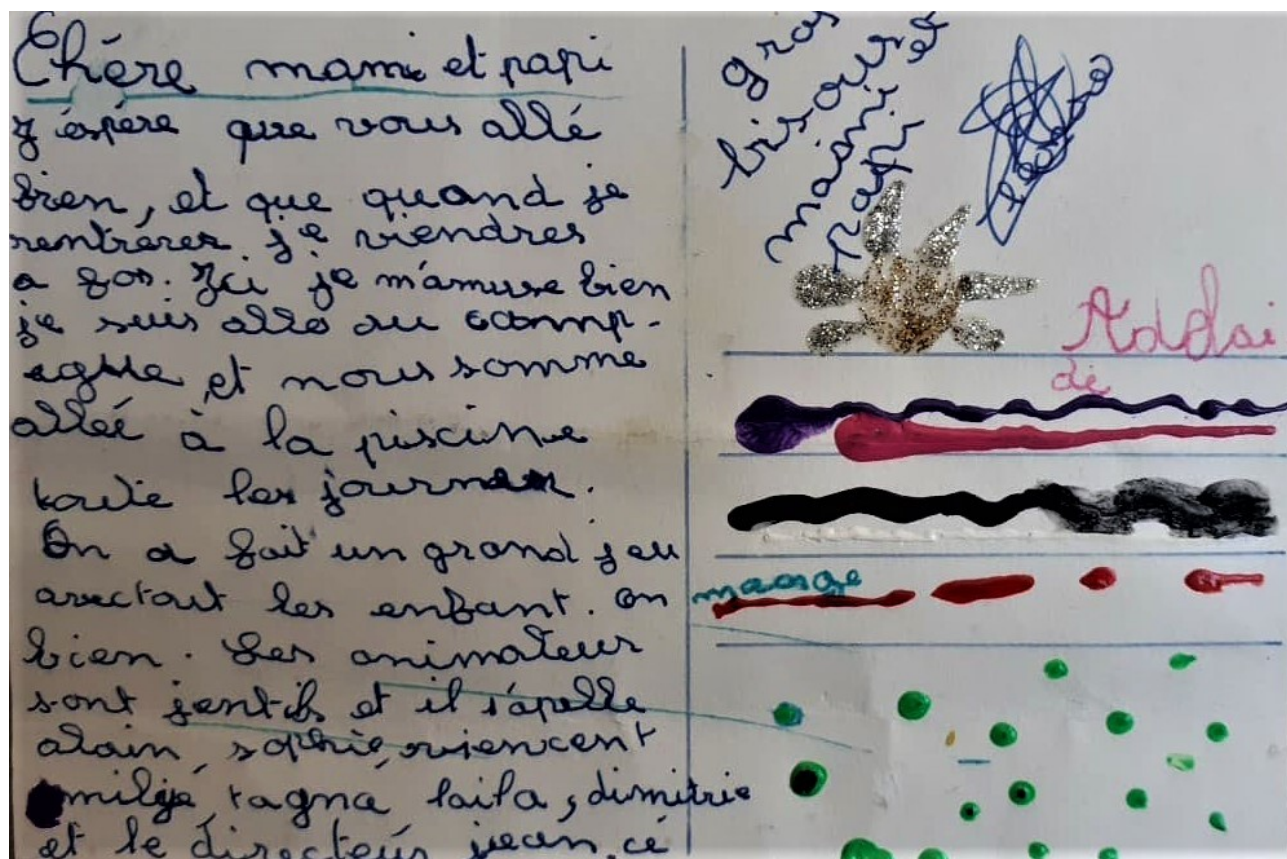 Chére mami et papi
J'éspére que vous allé
bien, et que quand je
rentrérer je viendres
a fos. Ici je m'amuse bien
je suis allé au
et nous somme
alleé à la piscine
toute les
On a fait un grand jeu
avectout les enfant. on mange
bien. Les animateur
sont jentils et il s'apelle
alain, sophie, viencent
tagna, laila, dimitrie
et le directeur jean, cé
gros
bisous
mami et
papi
Addlai
de